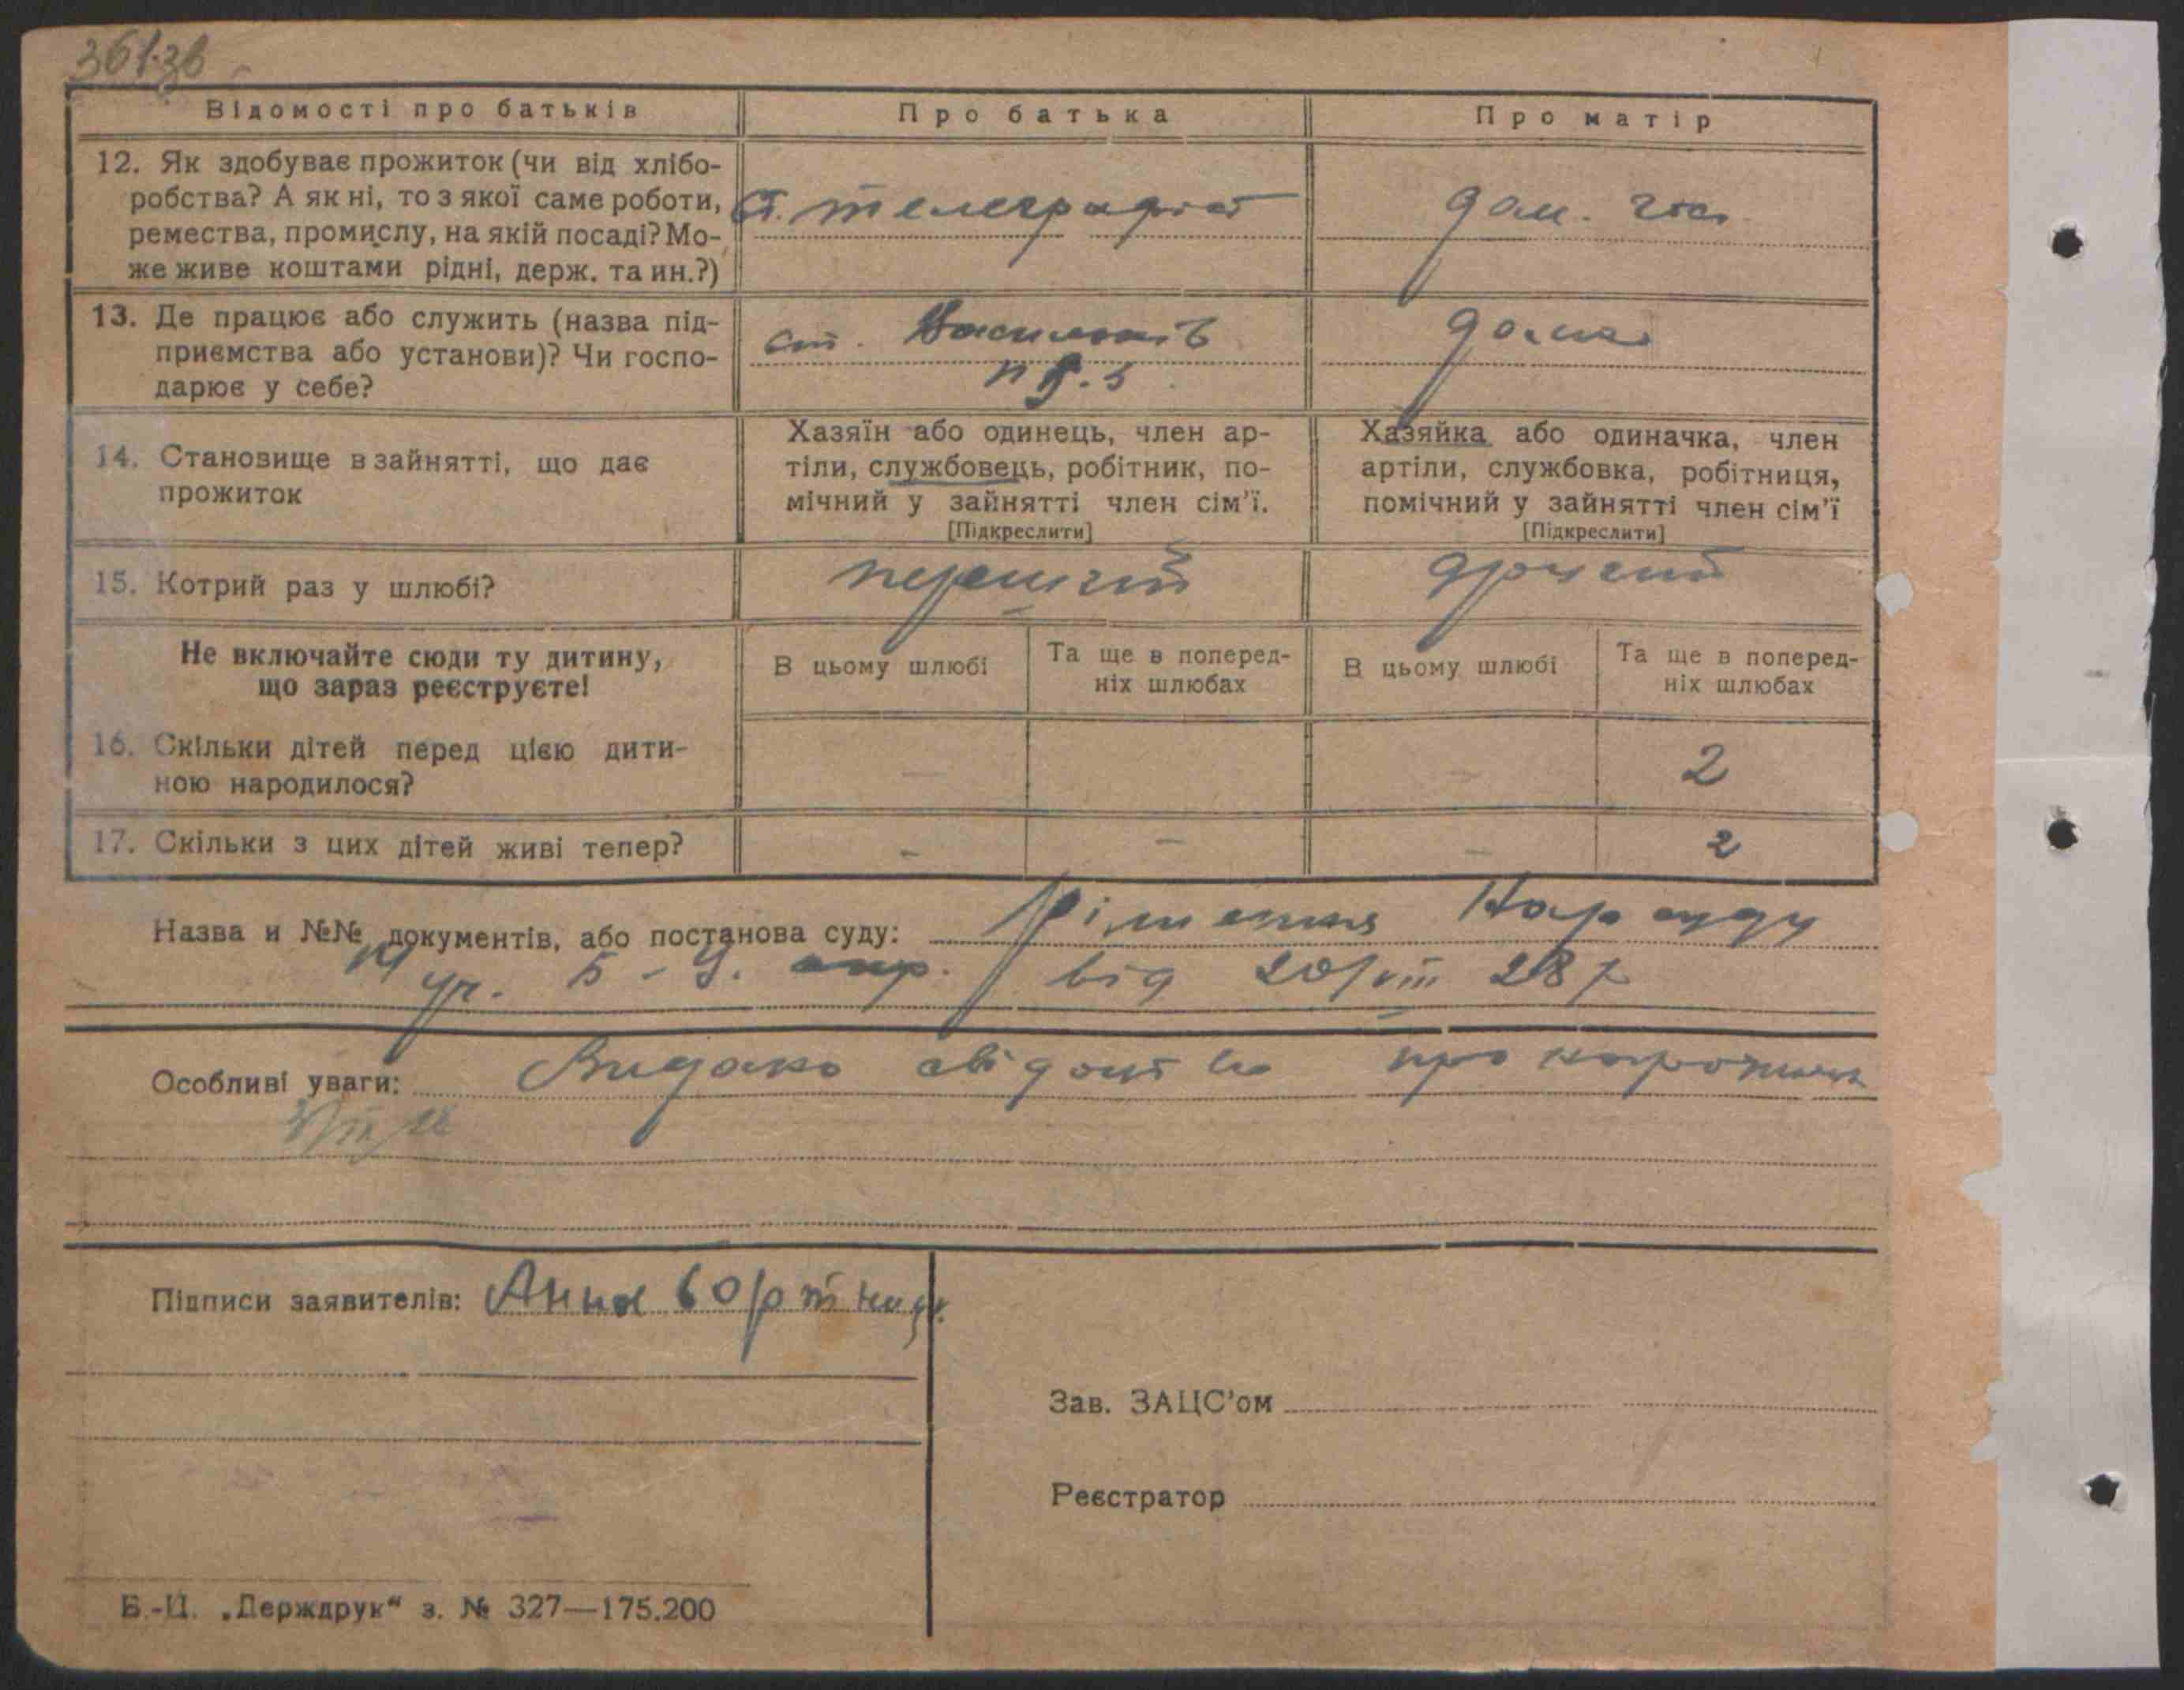 361·36
Відомості про батьків
Про батька
Про матір
12. Як здобуває прожиток (чи від хлібо-
робства? А як ні, то з якої саме роботи,
ремества, промислу, на якій посаді? Мо-
же живе коштами рідні, держ. та ин.?)
ст. телеграфіст
дом. гос
13. Де працює або служить (назва під-
приємства або установи)? Чи госпо-
дарює у себе?
ст. Васильків
дома
14. Становище в зайнятті, що дає
прожиток
Хазяїн або одинець, член ар-
тіли, службовець, робітник, по-
мічний у зайнятті член сім'ї.
[Підкреслити]
Хазяйка або одиначка, член
артіли, службовка, робітниця,
помічний у зайнятті член сім'ї
[Підкреслити]
15. Котрий раз у шлюбі?
перший
другий
Не включайте сюди ту дитину,
що зараз реєструєте!
В цьому шлюбі
Та ще в поперед-
ніх шлюбах
В цьому шлюбі
Та ще в поперед-
ніх шлюбах
16. Скільки дітей перед цією дити-
ною народилося?
–
–
2
17. Скільки з цих дітей живі тепер?
–
–
–
2
Назва и №№ документів, або постанова суду: Рішення Нарсуду
уч. Б-Ц. окр. від 20/VIII 28 р
Особливі уваги: Видано свідоцтво про народження
Підписи заявителів: Анна
Зав. ЗАЦС'ом
Реєстратор
Б.-Ц. „Держдрук“ з. № 327—175.200